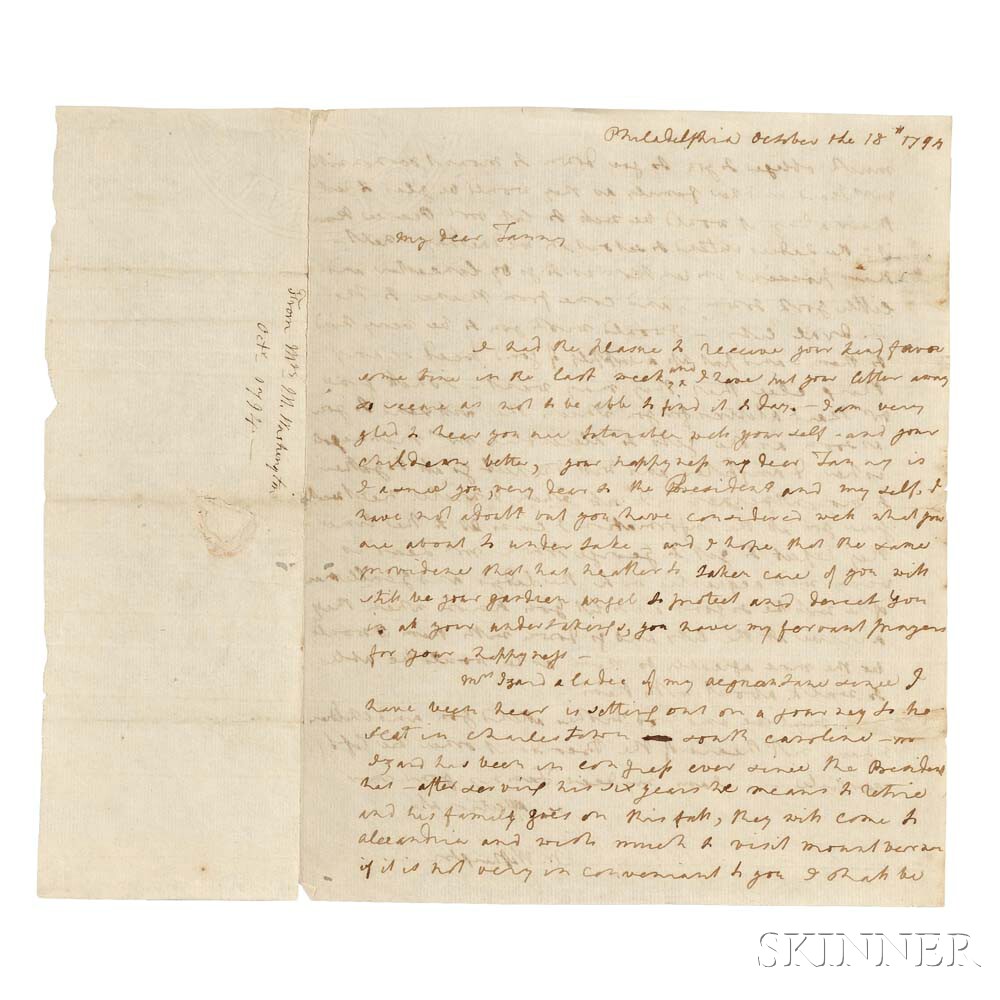 Philadelphia October the 18th 1794
My dear Fanny
I had the pleasure to receive your kind favor
some time in the last week, and I have put your letter away
so secure as not to be able to find it to day. - I am very
glad to hear you are tolarable well your self - and your
children better, - your happyness my dear Fanny is
I asure you, very dear to the President and my self, I
have not a doubt but you have considered well what you
are about to under take - and I hope that the same
providence that has heather to taken care of you will
still be your gardien angel to protect and derect you
in all your undertakings, you have my fervant prayers
for your happyness -
Mrs Izard a ladie of my aequantane since I
have been hear is setting out on a journey to he
seat in Charlestown south caroline - mr
Izard has been in congress ever since the President
has - after serving his six years he means to retire
and his family goes on this fall, they will come to
alexandria and wish much to visit mount vernon
if it is not very in conveniant to you I shall be
From Mrs M. Washington
Octr 1794 -
SKINNER